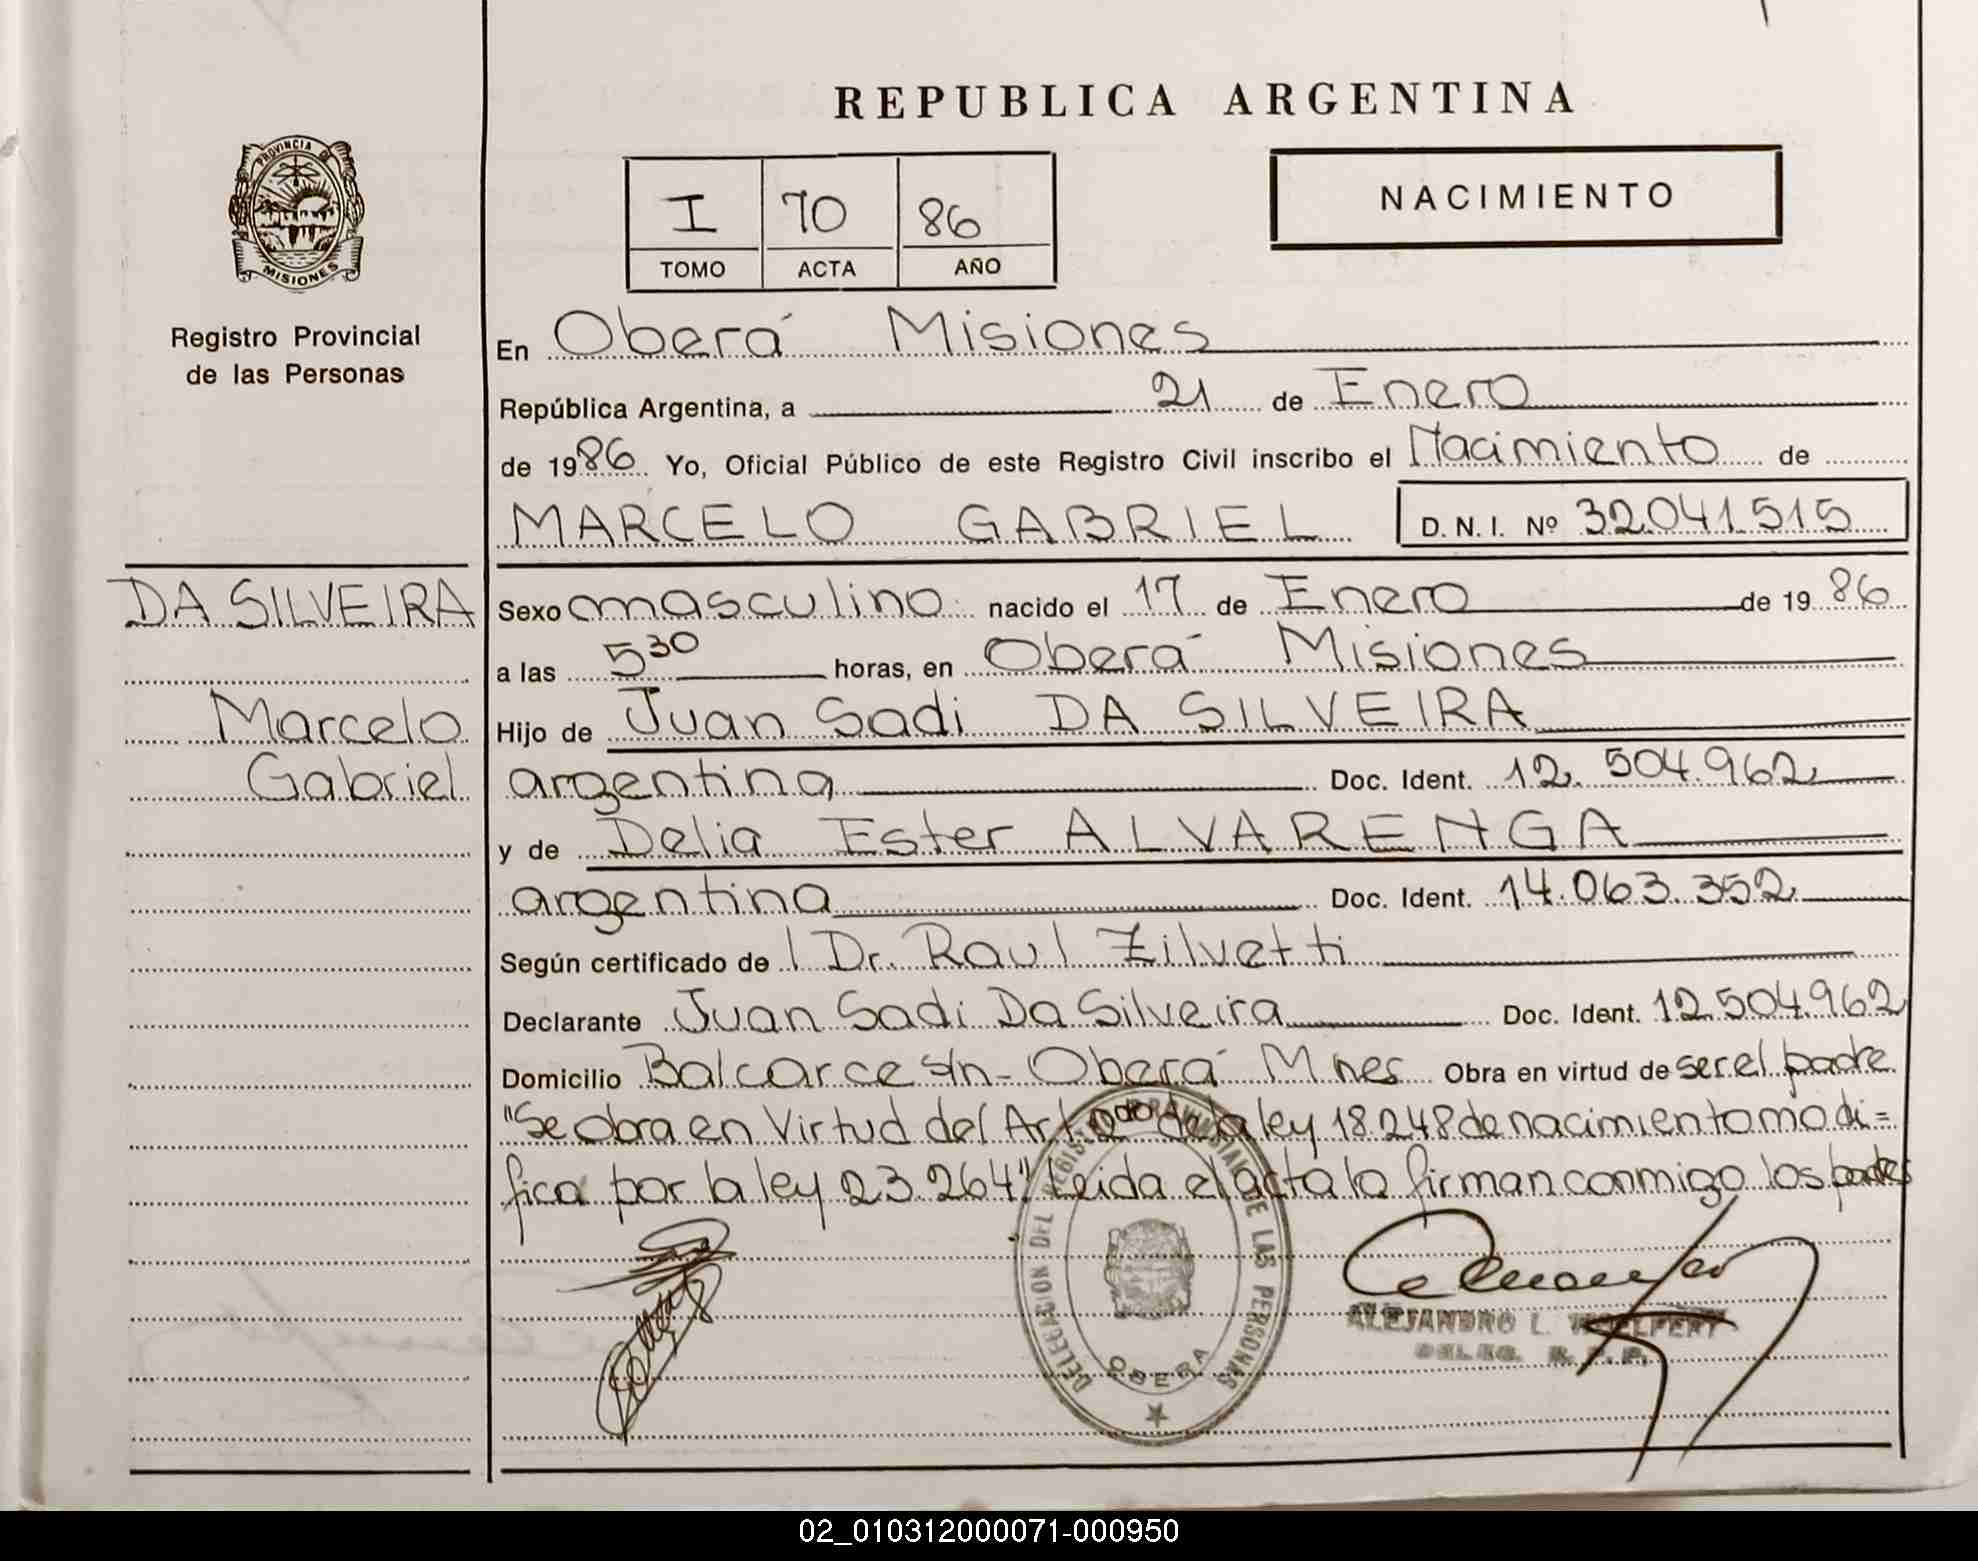 REPUBLICA ARGENTINA
PROVINCIA DE MISIONES
Registro Provincial
de las Personas
I 70 86
TOMO ACTA AÑO
NACIMIENTO
En Oberá Misiones
República Argentina, a 21 de Enero
de 1986. Yo, Oficial Público de este Registro Civil inscribo el Nacimiento de
MARCELO GABRIEL D. N. I. Nº 32.041.515
DA SILVEIRA
Marcelo
Gabriel
Sexo masculino nacido el 17 de Enero de 1986
a las 5 30 horas, en Oberá Misiones
Hijo de Juan Sadi DA SILVEIRA
argentina Doc. Ident. 12.504.962
y de Delia Ester ALVARENGA
argentina Doc. Ident. 14.063.352
Según certificado de Dr. Raul Zilvetti
Declarante Juan Sadi Da Silveira Doc. Ident. 12.504.962
Domicilio Balcarce s/n - Oberá Mnes Obra en virtud de ser el padre
"Se obra en Virtud del Art. de la ley 18.248 de nacimiento modi=
fica por la ley 23.264" Leida el acta la firman conmigo los padres
DELEGACION DEL REGISTRO PROVINCIAL DE LAS PERSONAS
OBERA
ALEJANDRO L.
DELEG. R. P. P.
02_010312000071-000950